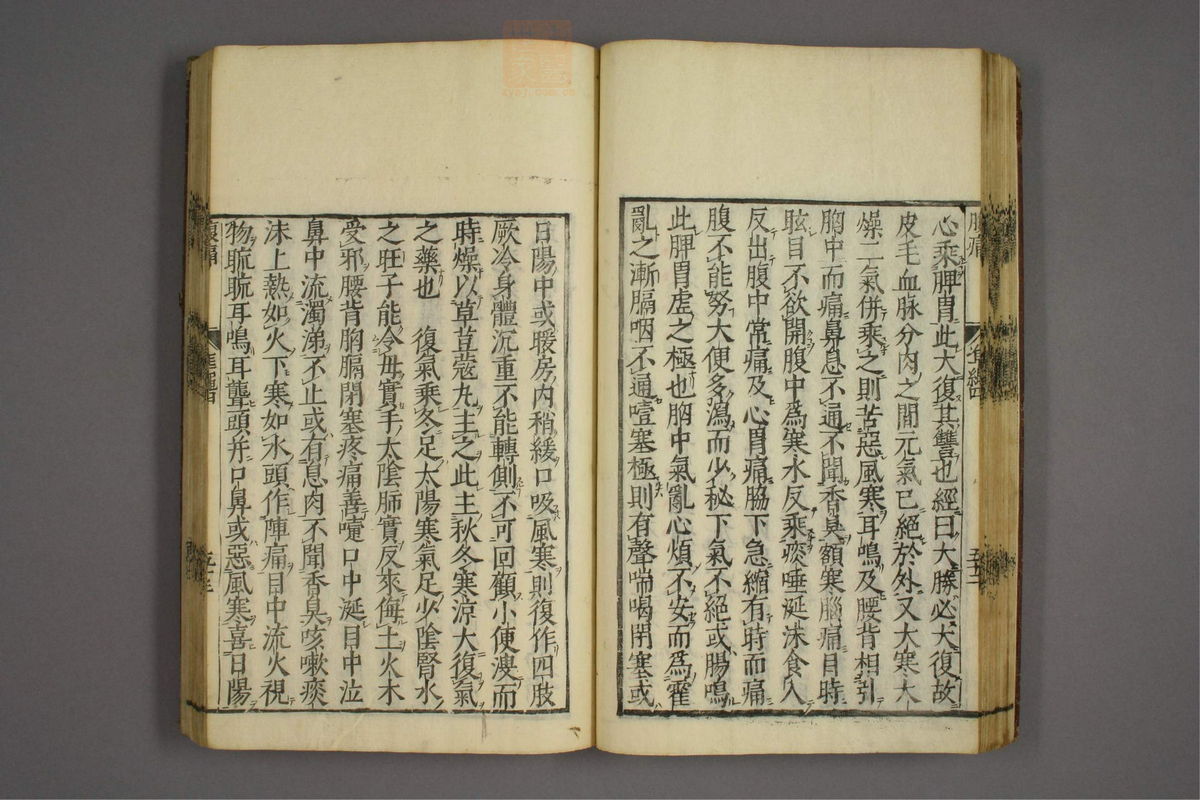 心乘脾胃此大復其讐也經曰大勝必大復故
皮毛血脉分肉之間元氣已絕於外又大寒大
燥二氣併乘之則苦惡風寒耳鳴及腰背相引
胸中而痛鼻息不通不聞香臭額寒腦痛目時
眩目不欲開腹中爲寒水反乘痰唾涎沫食入
反出腹中常痛及心胃痛脇下急縮有時而痛
腹不能努大便多瀉而少秘下氣不絕或腸鳴
此脾胃虛之極也胸中氣亂心煩不安而爲霍
亂之漸膈咽不通噎塞極則有聲喘喝閉塞或
日陽中或暖房內稍緩口吸風寒則復作四肢
厥冷身體沉重不能轉側不可回顧小便溲而
時燥以草荳蔻丸主之此主秋冬寒涼大復氣
之藥也 復氣乘冬足太陽寒氣足少陰腎水
之旺子能令母實手太陰肺實反來侮土火木
受邪腰背胸膈閉塞疼痛善嚏口中涎目中泣
鼻中流濁涕不止或有息肉不聞香臭咳嗽痰
沫上熱如火下寒如水頭作陣痛目中流火視
物䀮䀮耳鳴耳聾頭并口鼻或惡風寒喜日陽